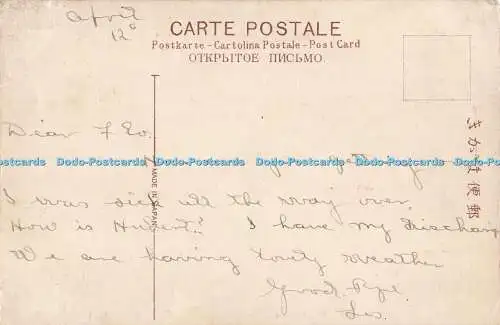 April
12
CARTE POSTALE
Postkarte - Cartolina Postale - Post Card
ОТКРЫТОЕ ПИСЬМО.
きがは便郵
MADE IN JAPAN
Dear
Dodo-Postcards Dodo-Postcards Dodo-Postcards Dodo-Postcards Dodo-Postcards Dodo-Postcards
I was sick all the way over.
How is Hubert? I have my Discharge
We are having lovely weather
Good
Les.